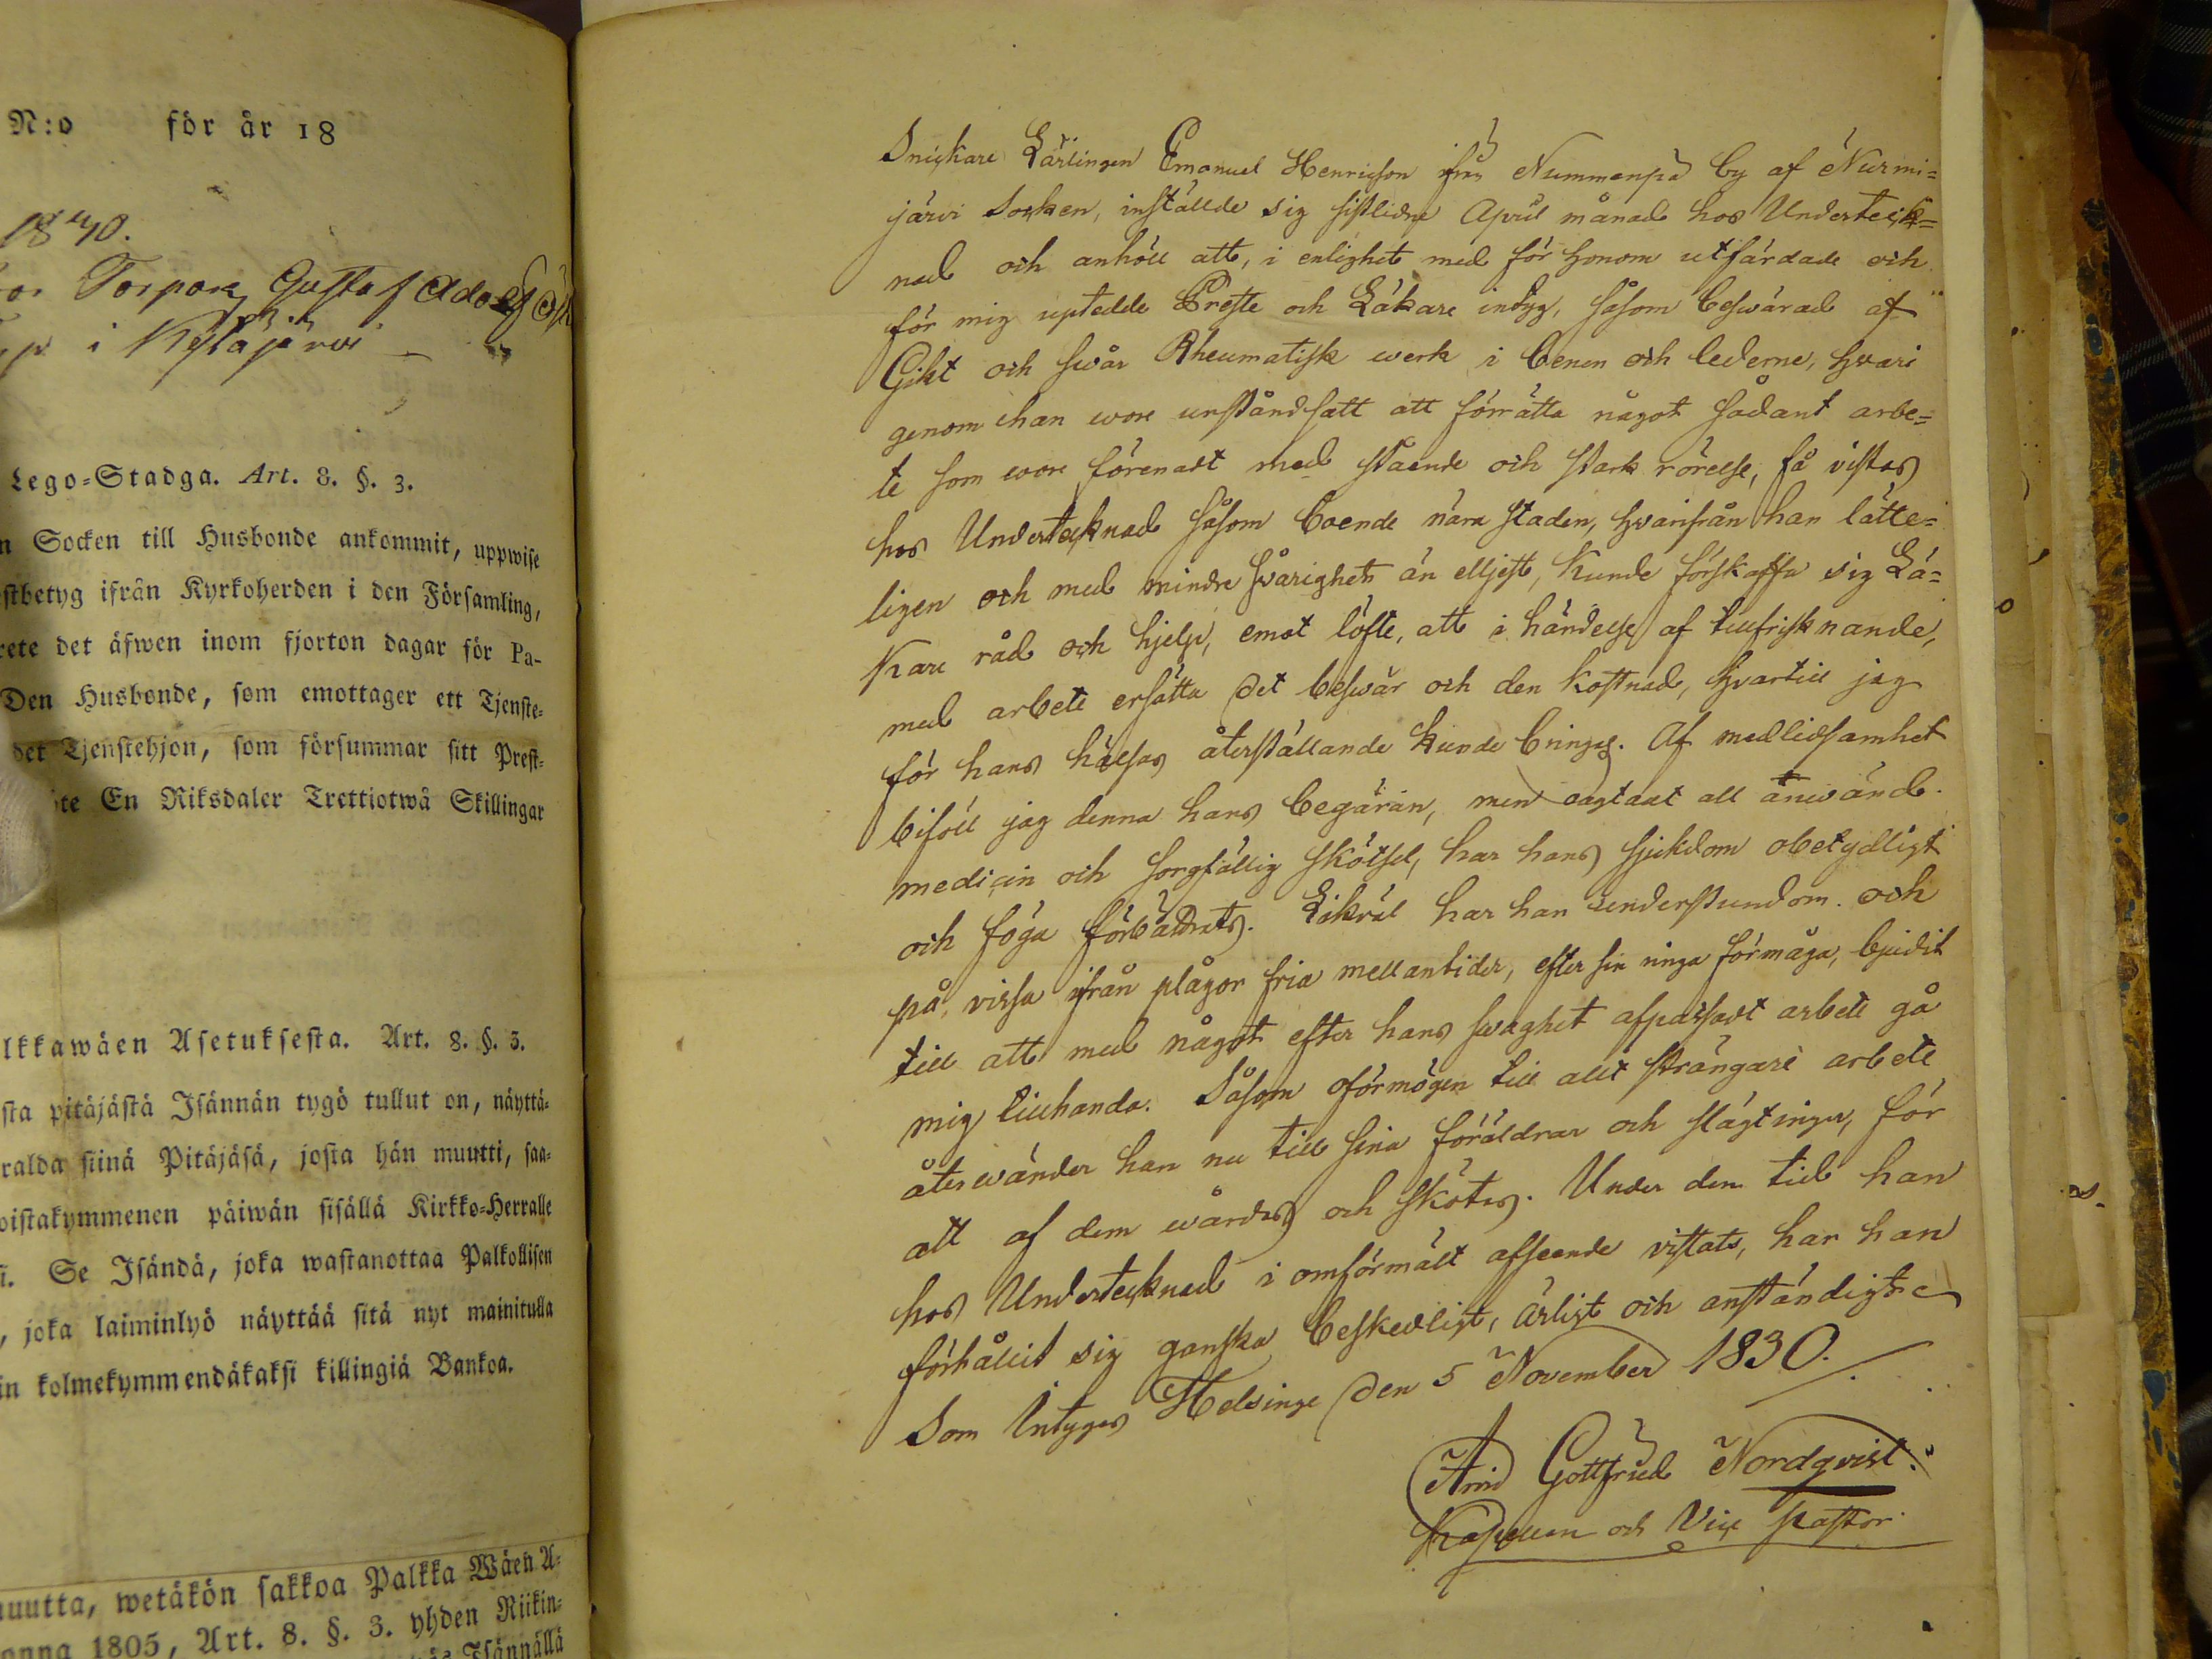 N:o för år 18
1840.
Torpare Gustaf Adolf
i Kytäjärvi
Lego-Stadga. Art. 8. §. 3.
n Socken till Husbonde ankommit, uppwise
stbetyg ifrån Kyrkoherden i den Församling,
rete det äfwen inom fjorton dagar för Pa-
Den Husbonde, som emottager ett Tjenste-
det Tjenstehjon, som försummar sitt Prest-
te En Riksdaler Trettiotwå Skillingar
lkkawäen Asetuksesta. Art. 8. §. 3.
sta pitäjästä Isännän tygö tullut on, näyttä-
ralda siinä Pitäjäsä, josta hän muutti, saa-
oistakymmenen päiwän sisällä Kirkko-Herralle
i. Se Isändä, joka wastanottaa Palkollisen
, joka laiminlyö näyttää sitä nyt mainitulla
in kolmekymmendäkaksi killingiä Bankoa.
uutta, wetäkön sakkoa Palkka Wäen A-
onna 1805, Art. 8. §. 3. yhden Riikin-
Isännällä
Snickare Lärlingen Emanuel Henricson ifrån Nummenpä by af Nurmi=
järvi Socken, inställde sig sistlidne April månad hos Underteck=
nad och anhöll att, i enlighet med för honom utfärdade och
för mig uptedde Preste och Läkare intyg, såsom beswärad af
Gikt och swår Rheumatisk werk i benen och lederne, hvari
genom han wore urståndsatt att förrätta något sådant arbe=
te som wore förenadt med stående och stark rörelse, få vistas
hos Undertecknad såsom boende nära staden, hvarifrån han lätte=
ligen och med mindre svårighet än elljest, kunde förskaffa sig Lä=
kare råd och hjelp, emot löfte, att i händelse af tillfrisknande,
med arbete ersätta det beswär och den kostnad, hvartill jag
för hans hälsas återställande kunde bringas. Af medlidsamhet
biföll jag denna hans begäran, men oagtadt all använd
medicin och sorgfällig skötsel, har hans sjukdom obetydligt
och föga förbättrats. Likväl har han understundom och
på vissa ifrån plågor fria mellantider, efter sin ringa förmåga, bjudit
till att med något efter hans swaghet afpassadt arbete gå
mig tillhanda. Såsom oförmögen till allt strängare arbete
återwänder han nu till sina föräldrar och slägtingar, för
att af dem wårdas och skötas. Under den tid han
hos Undertecknad i omförmält afseende vistats, har han
förhållit sig ganska beskedligt, ärligt och anständigt
Som Intygas Helsinge den 5 November 1830.
Arvid Gottfried Nordqvist.
Kapellan och Vice Pastor